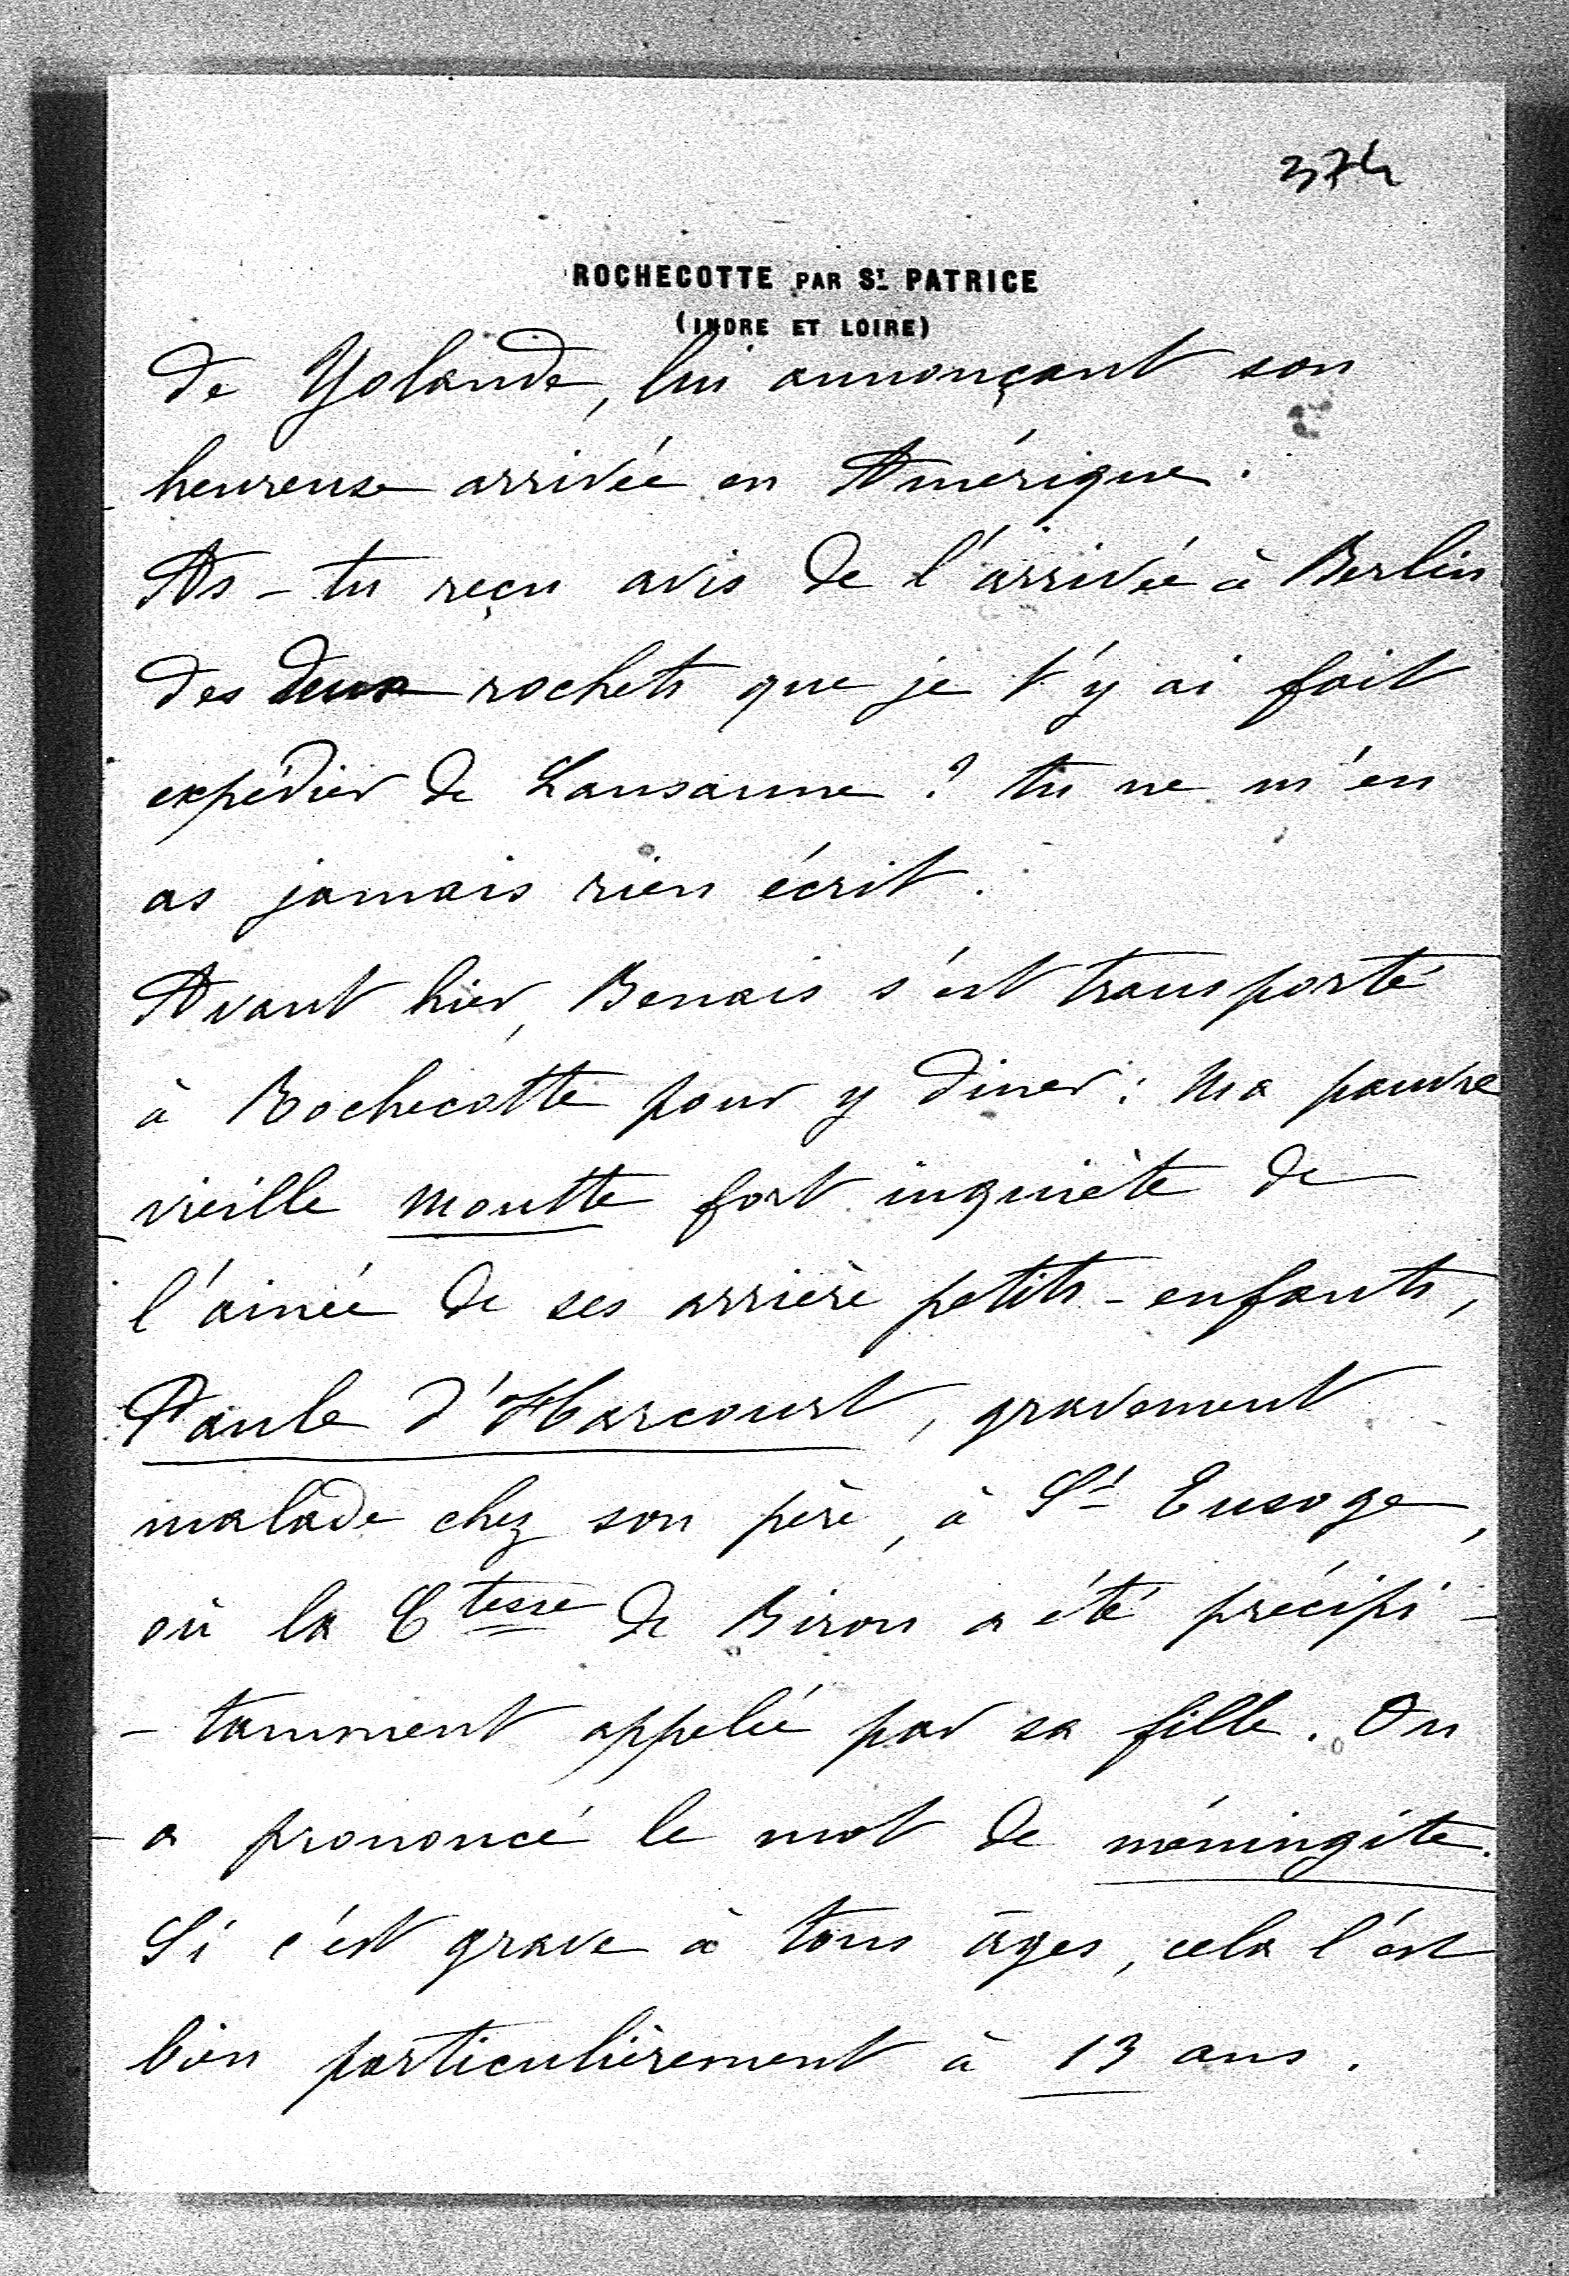 374
ROCHECOTTE PAR ST PATRICE
(INDRE ET LOIRE)
de Yolande, lui annonçant son
heureuse arrivée en Amérique.
As-tu reçu avis de l'arrivée à Berlin
des deux rochets que je t'y ai fait
expédier de Lausanne ? tu ne m'en
as jamais rien écrit.
Avant hier, Benais s'est transporté
à Rochecotte pour y diner : Ma pauvre
vieille moutte fort inquiète de
l'ainée de ses arrière petits-enfants,
Paule d'Harcourt, gravement
malade chez son père, à St Eusoge,
où la Ctesse de Biron a été précipi-
-tamment appelée par sa fille. On
a prononcé le mot de méningite.
Si c'est grave à tous âges, cela l'est
bien particulièrement à 13 ans.